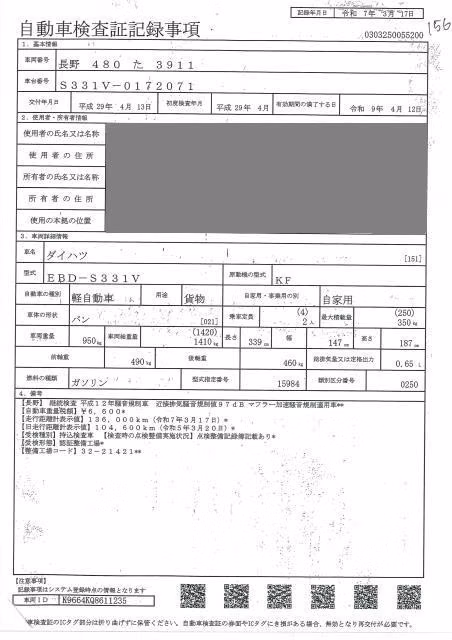 記録年月日 令和 7年 3月 17日
156
自動車検査証記録事項
0303250055200
1. 基本情報
車両番号 長野 480 た 3911
車台番号 S331V-0172071
交付年月日 平成 29年 4月 13日 初度検査年月 平成 29年 4月 有効期間の満了する日 令和 9年 4月 12日
2. 使用者・所有者情報
使用者の氏名又は名称
使用者の住所
所有者の氏名又は名称
所有者の住所
使用の本拠の位置
3. 車両詳細情報
車名 ダイハツ [151]
型式 EBD-S331V 原動機の型式 KF
自動車の種別 軽自動車 用途 貨物 自家用・事業用の別 自家用
車体の形状 バン [021] 乗車定員 (4) 2人 最大積載量 (250) 350kg
車両重量 950kg 車両総重量 (1420) 1410kg 長さ 339cm 幅 147cm 高さ 187cm
前軸重 490kg 後軸重 460kg 総排気量又は定格出力 0.65L
燃料の種類 ガソリン 型式指定番号 15984 類別区分番号 0250
4. 備考
【長野】 継続検査 平成12年騒音規制車 近接排気騒音規制値97dB マフラー加速騒音規制適用車**
【自動車重量税額】¥6,600*
【走行距離計表示値】136,000km(令和7年3月17日)*
【旧走行距離計表示値】104,600km(令和5年3月20日)*
【受検種別】持込検査車 【検査時の点検整備実施状況】点検整備記録簿記載あり*
【受検形態】認証整備工場*
【整備工場コード】32-21421**
【注意事項】
記録事項はシステム登録時点の情報となります
車両ID K9664KQ8611235
車検査証のICタグ部分は折り曲げずに保管ください。自動車検査証の券面やICタグにき損がある場合、無効となり再交付が必要です。